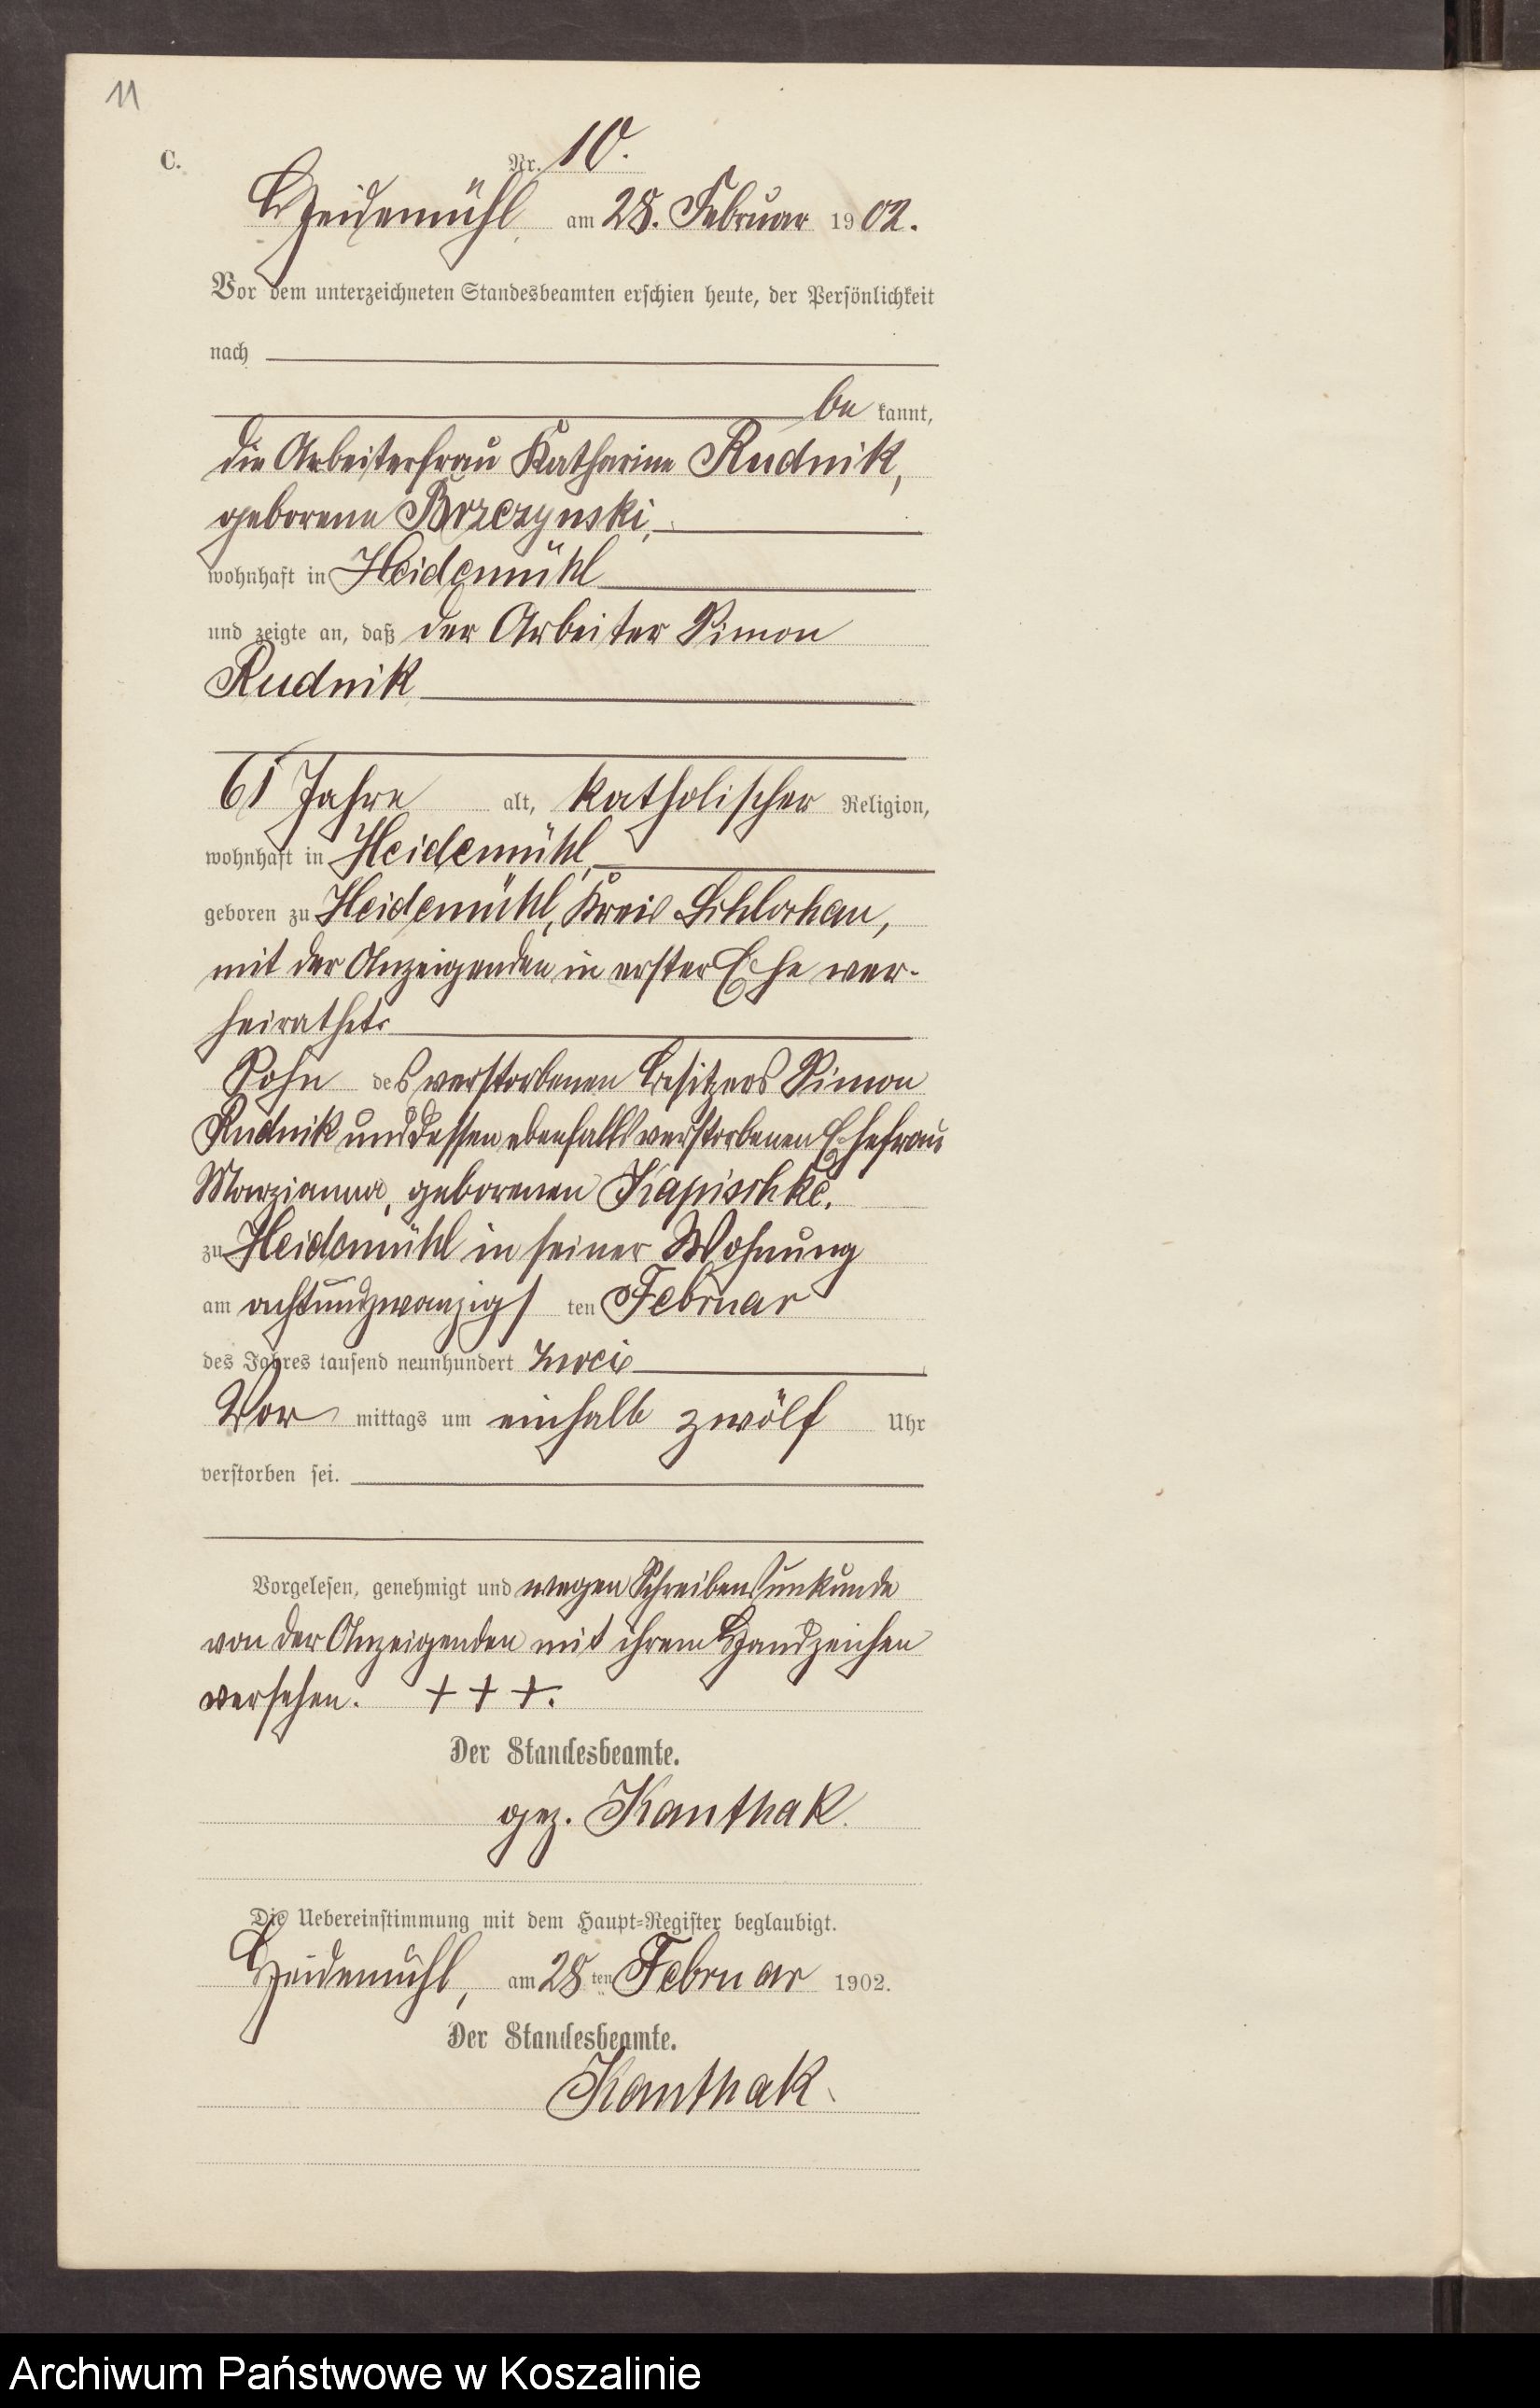 11
C.
Nr. 10.
Heidemühl am 28. Februar 1902.
Vor dem unterzeichneten Standesbeamten erschien heute, der Persönlichkeit
nach
be kannt,
die Arbeiterfrau Katharina Rudnik,
geborene Brzczynski,
wohnhaft in Heidemühl
und zeigte an, daß der Arbeiter Simon
Rudnik
61 Jahre alt, katholischer Religion,
wohnhaft in Heidemühl,
geboren zu Heidemühl, Kreis Schlochau,
mit der Anzeigenden in erster Ehe ver-
heirathet.
Sohn des verstorbenen Besitzers Simon
Rudnik und dessen ebenfalls verstorbenen Ehefrau
Marzianna, geborenen Kapischke.
zu Heidemühl in seiner Wohnung
am achtundzwanzigsten Februar
des Jahres tausend neunhundert zwei
Vor mittags um einhalb zwölf Uhr
verstorben sei.
Vorgelesen, genehmigt und wegen Schreibensunkunde
von der Anzeigenden mit ihrem Handzeichen
versehen. + + +.
Der Standesbeamte.
gez. Kanthak.
Die Uebereinstimmung mit dem Haupt-Register beglaubigt.
Heidemühl, am 28ten Februar 1902.
Der Standesbeamte.
Kanthak.
Archiwum Państwowe w Koszalinie